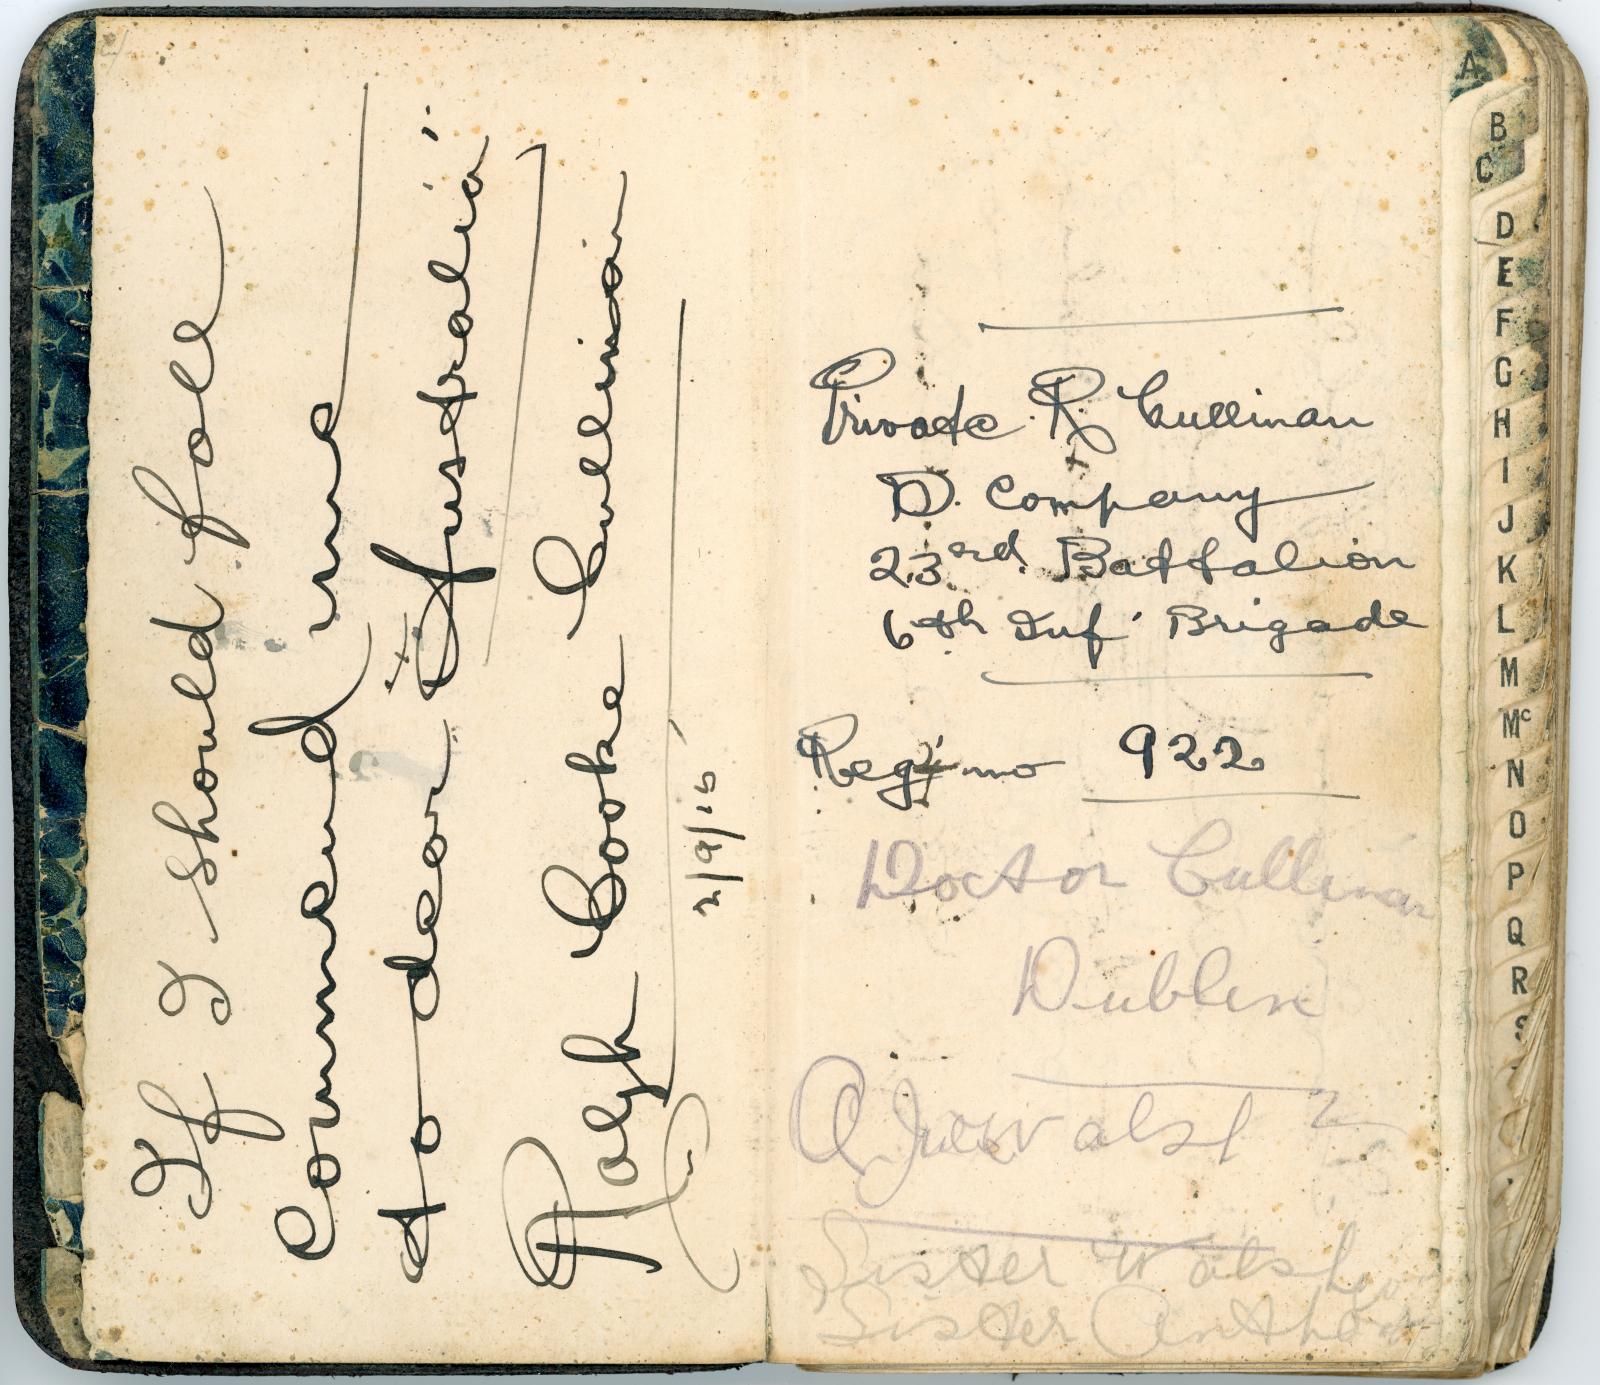 If I should fall
Commend me
to dear Australia
Ralph Cooke Cullinan
2/9/15
Private R Cullinan
D. Company
23rd. Battalion
6th Inf' Brigade
Reg' no 922
Doctor Cullinan
Dublin
Sister Walsh
Sister
A
B
C
D
E
F
G
H
I
J
K
L
M
Mc
N
O
P
Q
R
S